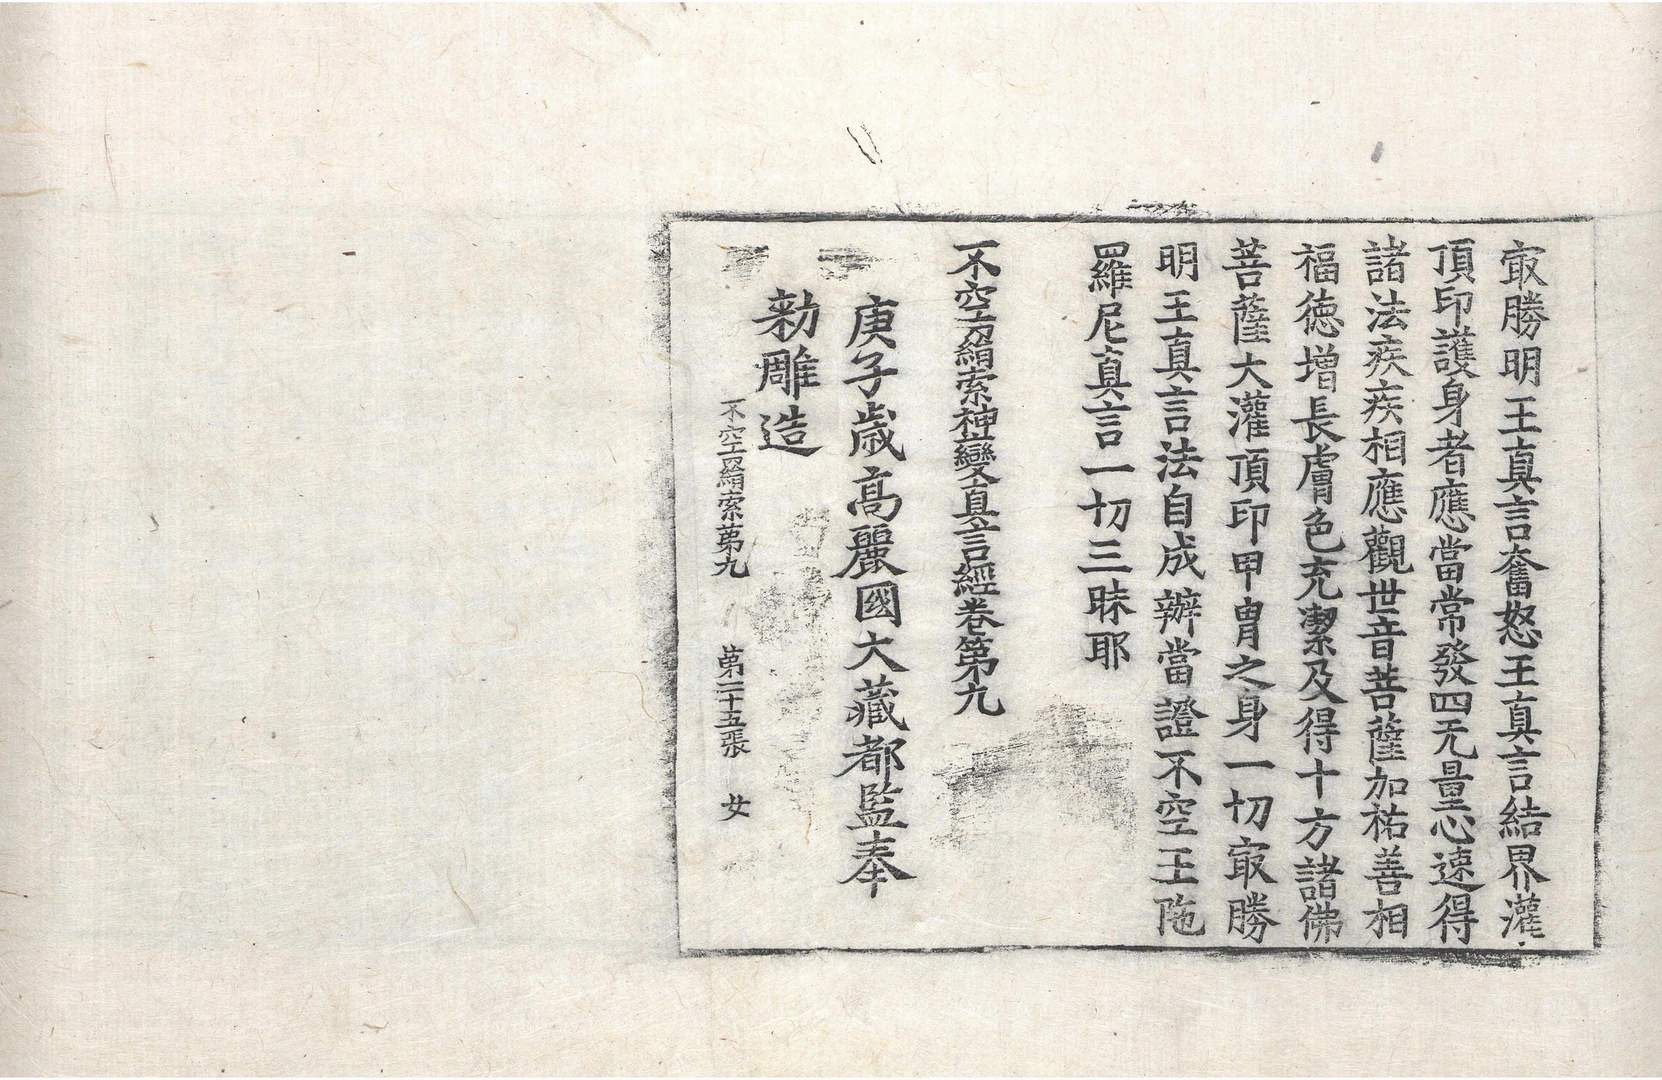 㝡勝明王真言奮怒王真言結界灌
頂印護身者應當常發四无量心速得
諸法疾疾相應觀世音菩薩加祐善相
福德增長膚色充潔及得十方諸佛
菩薩大灌頂印甲冑之身一切㝡勝
明王真言法自成辦當證不空王陁
羅尼真言一切三昧耶
不空羂索神變真言經卷第九
庚子歲高麗國大藏都監奉
勑雕造
不空羂索第九 第二十五張 女